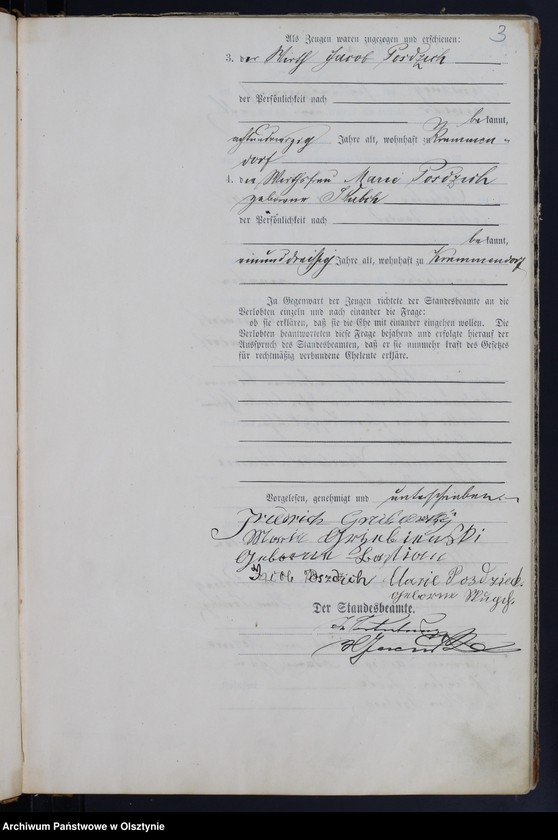 3
Als Zeugen waren zugezogen und erschienen:
3. der Wirth Jacob Posdzich
der Persönlichkeit nach
bekannt,
achtundvierzig Jahre alt, wohnhaft zu Krammen-
dorf
4. die Wirthsfrau Marie Posdzich
geborene
der Persönlichkeit nach
bekannt,
einunddreißig Jahre alt, wohnhaft zu Krammendorf
In Gegenwart der Zeugen richtete der Standesbeamte an die
Verlobten einzeln und nach einander die Frage:
ob sie erklären, daß sie die Ehe mit einander eingehen wollen. Die
Verlobten beantworteten diese Frage bejahend und erfolgte hierauf der
Ausspruch des Standesbeamten, daß er sie nunmehr kraft des Gesetzes
für rechtmäßig verbundene Eheleute erkläre.
Vorgelesen, genehmigt und unterschrieben
Friedrich
Marie Grzebienski
Geborene Bastian
Jacob Poszdzich Marie Posdzich
geborene
Der Standesbeamte.
In Vertretung
Archiwum Państwowe w Olsztynie